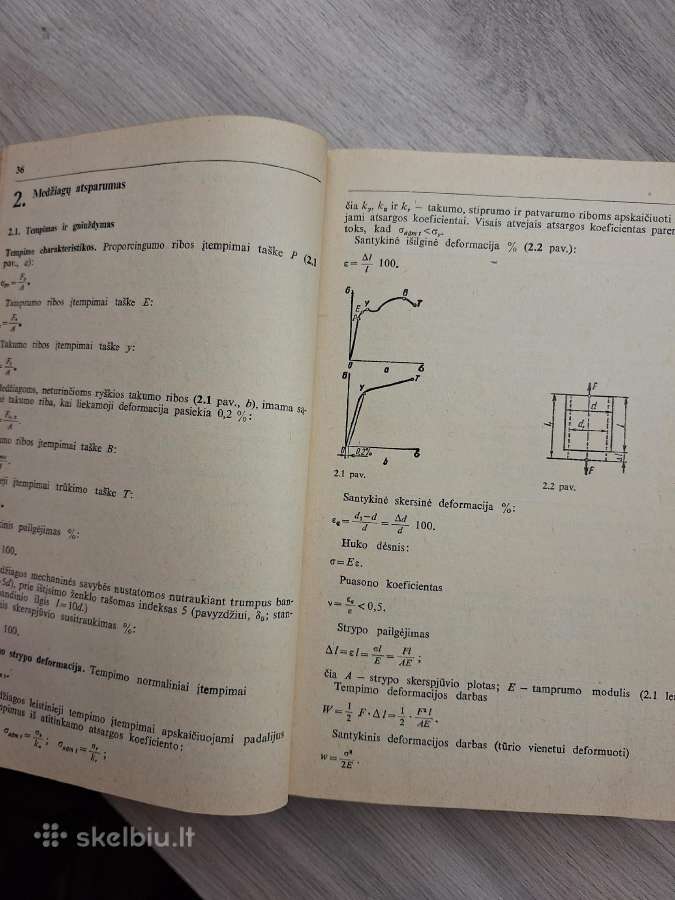 36
2. Medžiagų atsparumas
2.1. Tempimas ir gniuždymas
Tempimo charakteristikos. Proporcingumo ribos įtempimai taške P (2.1
pav., a):
Tamprumo ribos įtempimai taške E:
Takumo ribos įtempimai taške y:
neturinčioms ryškios takumo ribos (2.1 pav., b), imama są-
takumo riba, kai liekamoji deformacija pasiekia 0,2 %:
ribos įtempimai taške B:
įtempimai trūkimo taške T:
pailgėjimas %:
100.
mechaninės savybės nustatomos nutraukiant trumpus ban-
prie ištįsimo ženklo rašomas indeksas 5 (pavyzdžiui, stan-
ilgis l=10d.)
skerspjūvio susitraukimas %:
100.
strypo deformacija. Tempimo normaliniai įtempimai
leistinieji tempimo įtempimai apskaičiuojami padalijus
iš atitinkamo atsargos koeficiento:
čia ir — takumo, stiprumo ir patvarumo riboms apskaičiuoti
jami atsargos koeficientai. Visais atvejais atsargos koeficientas
toks, kad
Santykinė išilginė deformacija % (2.2 pav.):
ε = Δl/l 100.
σ
E
P
y
B
T
0
a
б
B
y
T
0
0,2%
б
b
2.1 pav.
F
d
d₁
l₁
l
F
2.2 pav.
Santykinė skersinė deformacija %:
= d₁−d/d = Δd/d 100.
Huko dėsnis:
σ=Eε.
Puasono koeficientas
<0,5.
Strypo pailgėjimas
Δl=εl= σl/E = Fl/AE ;
čia A — strypo skerspjūvio plotas; E — tamprumo modulis (2.1
Tempimo deformacijos darbas
W= 1/2 F·Δl= 1/2 · F²l/AE .
Santykinis deformacijos darbas (tūrio vienetui deformuoti)
w= σ²/2E .
skelbiu.lt